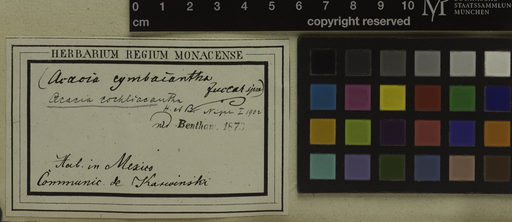 0 1 2 3 4 5 6 7 8 9 10
cm
copyright reserved
STAATSSAMMLUNG
MÜNCHEN
HERBARIUM REGIUM MONACENSE
(Acacia cymbacantha
Acacia cochliacantha
Benthom. 1875
Hab. in Mexico
Communic. de Karwinski